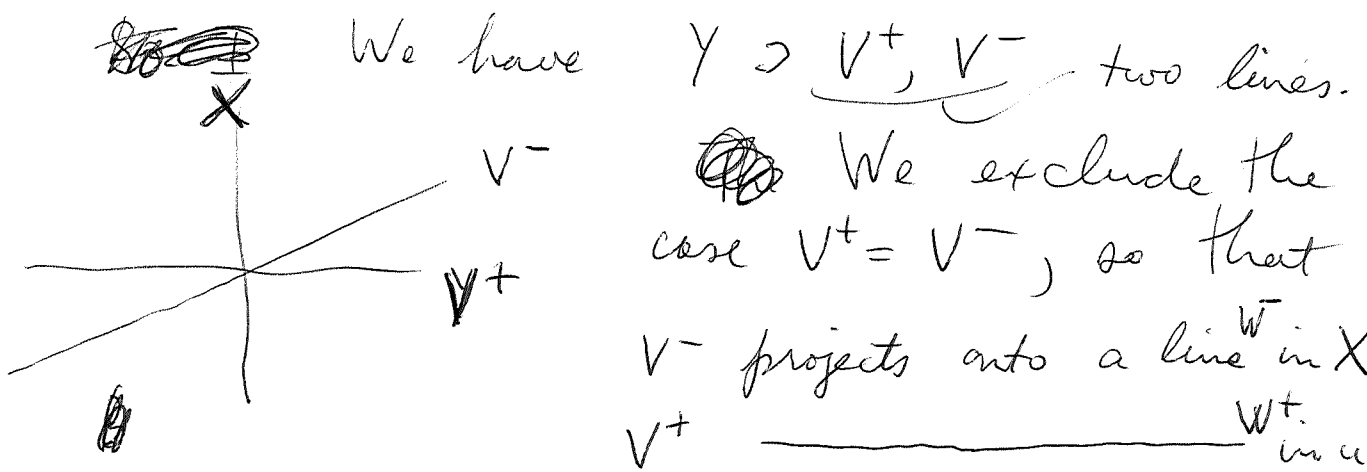 We have Y ⊃ V⁺, V⁻ two lines.
X
V⁻
V⁺
We exclude the
case V⁺ = V⁻, so that
V⁻ projects onto a line W⁻ in X
V⁺ ——— W⁺ in